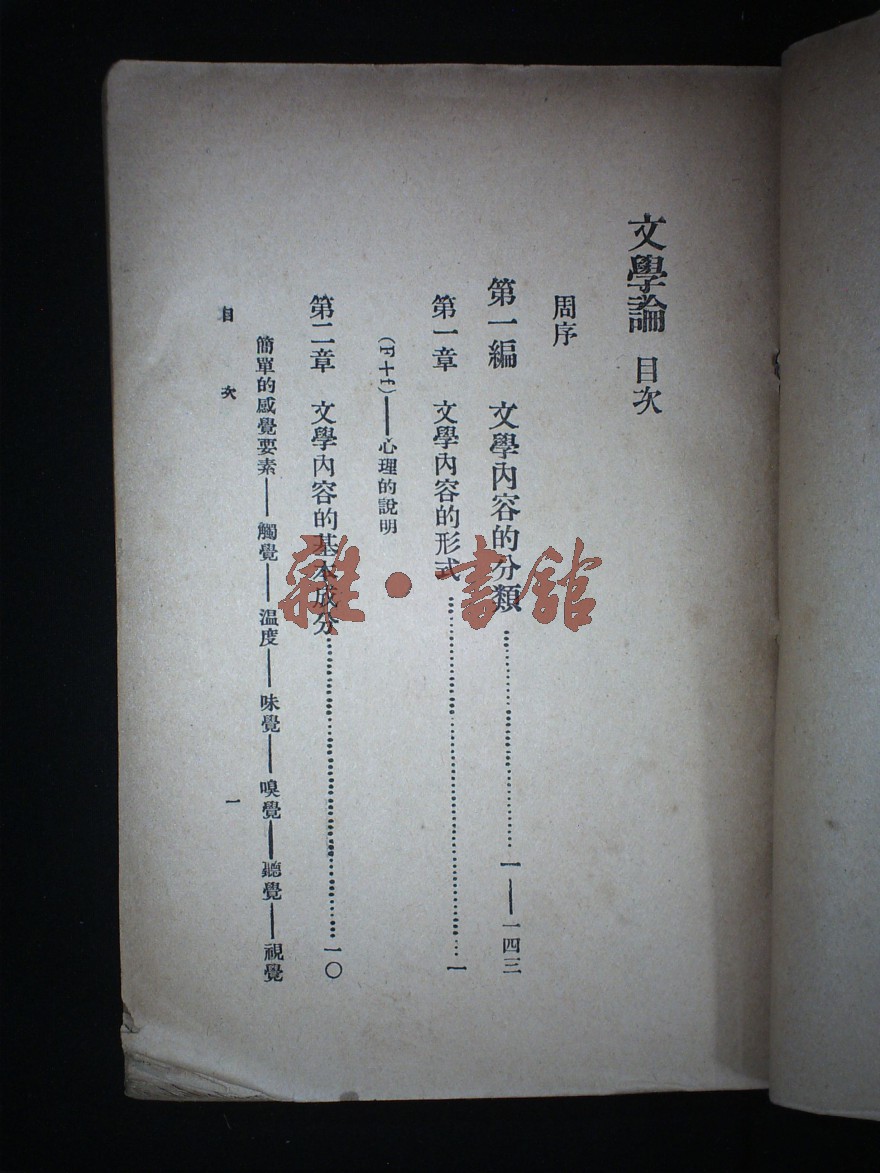 文學論 目次
周序
第一編 文學內容的分類…………一——一四三
第一章 文學內容的形式…………一
(F+f)——心理的說明
第二章 文學內容的基本成分…………一〇
簡單的感覺要素——觸覺——温度——味覺——嗅覺——聽覺——視覺
目次 一
雜·書館